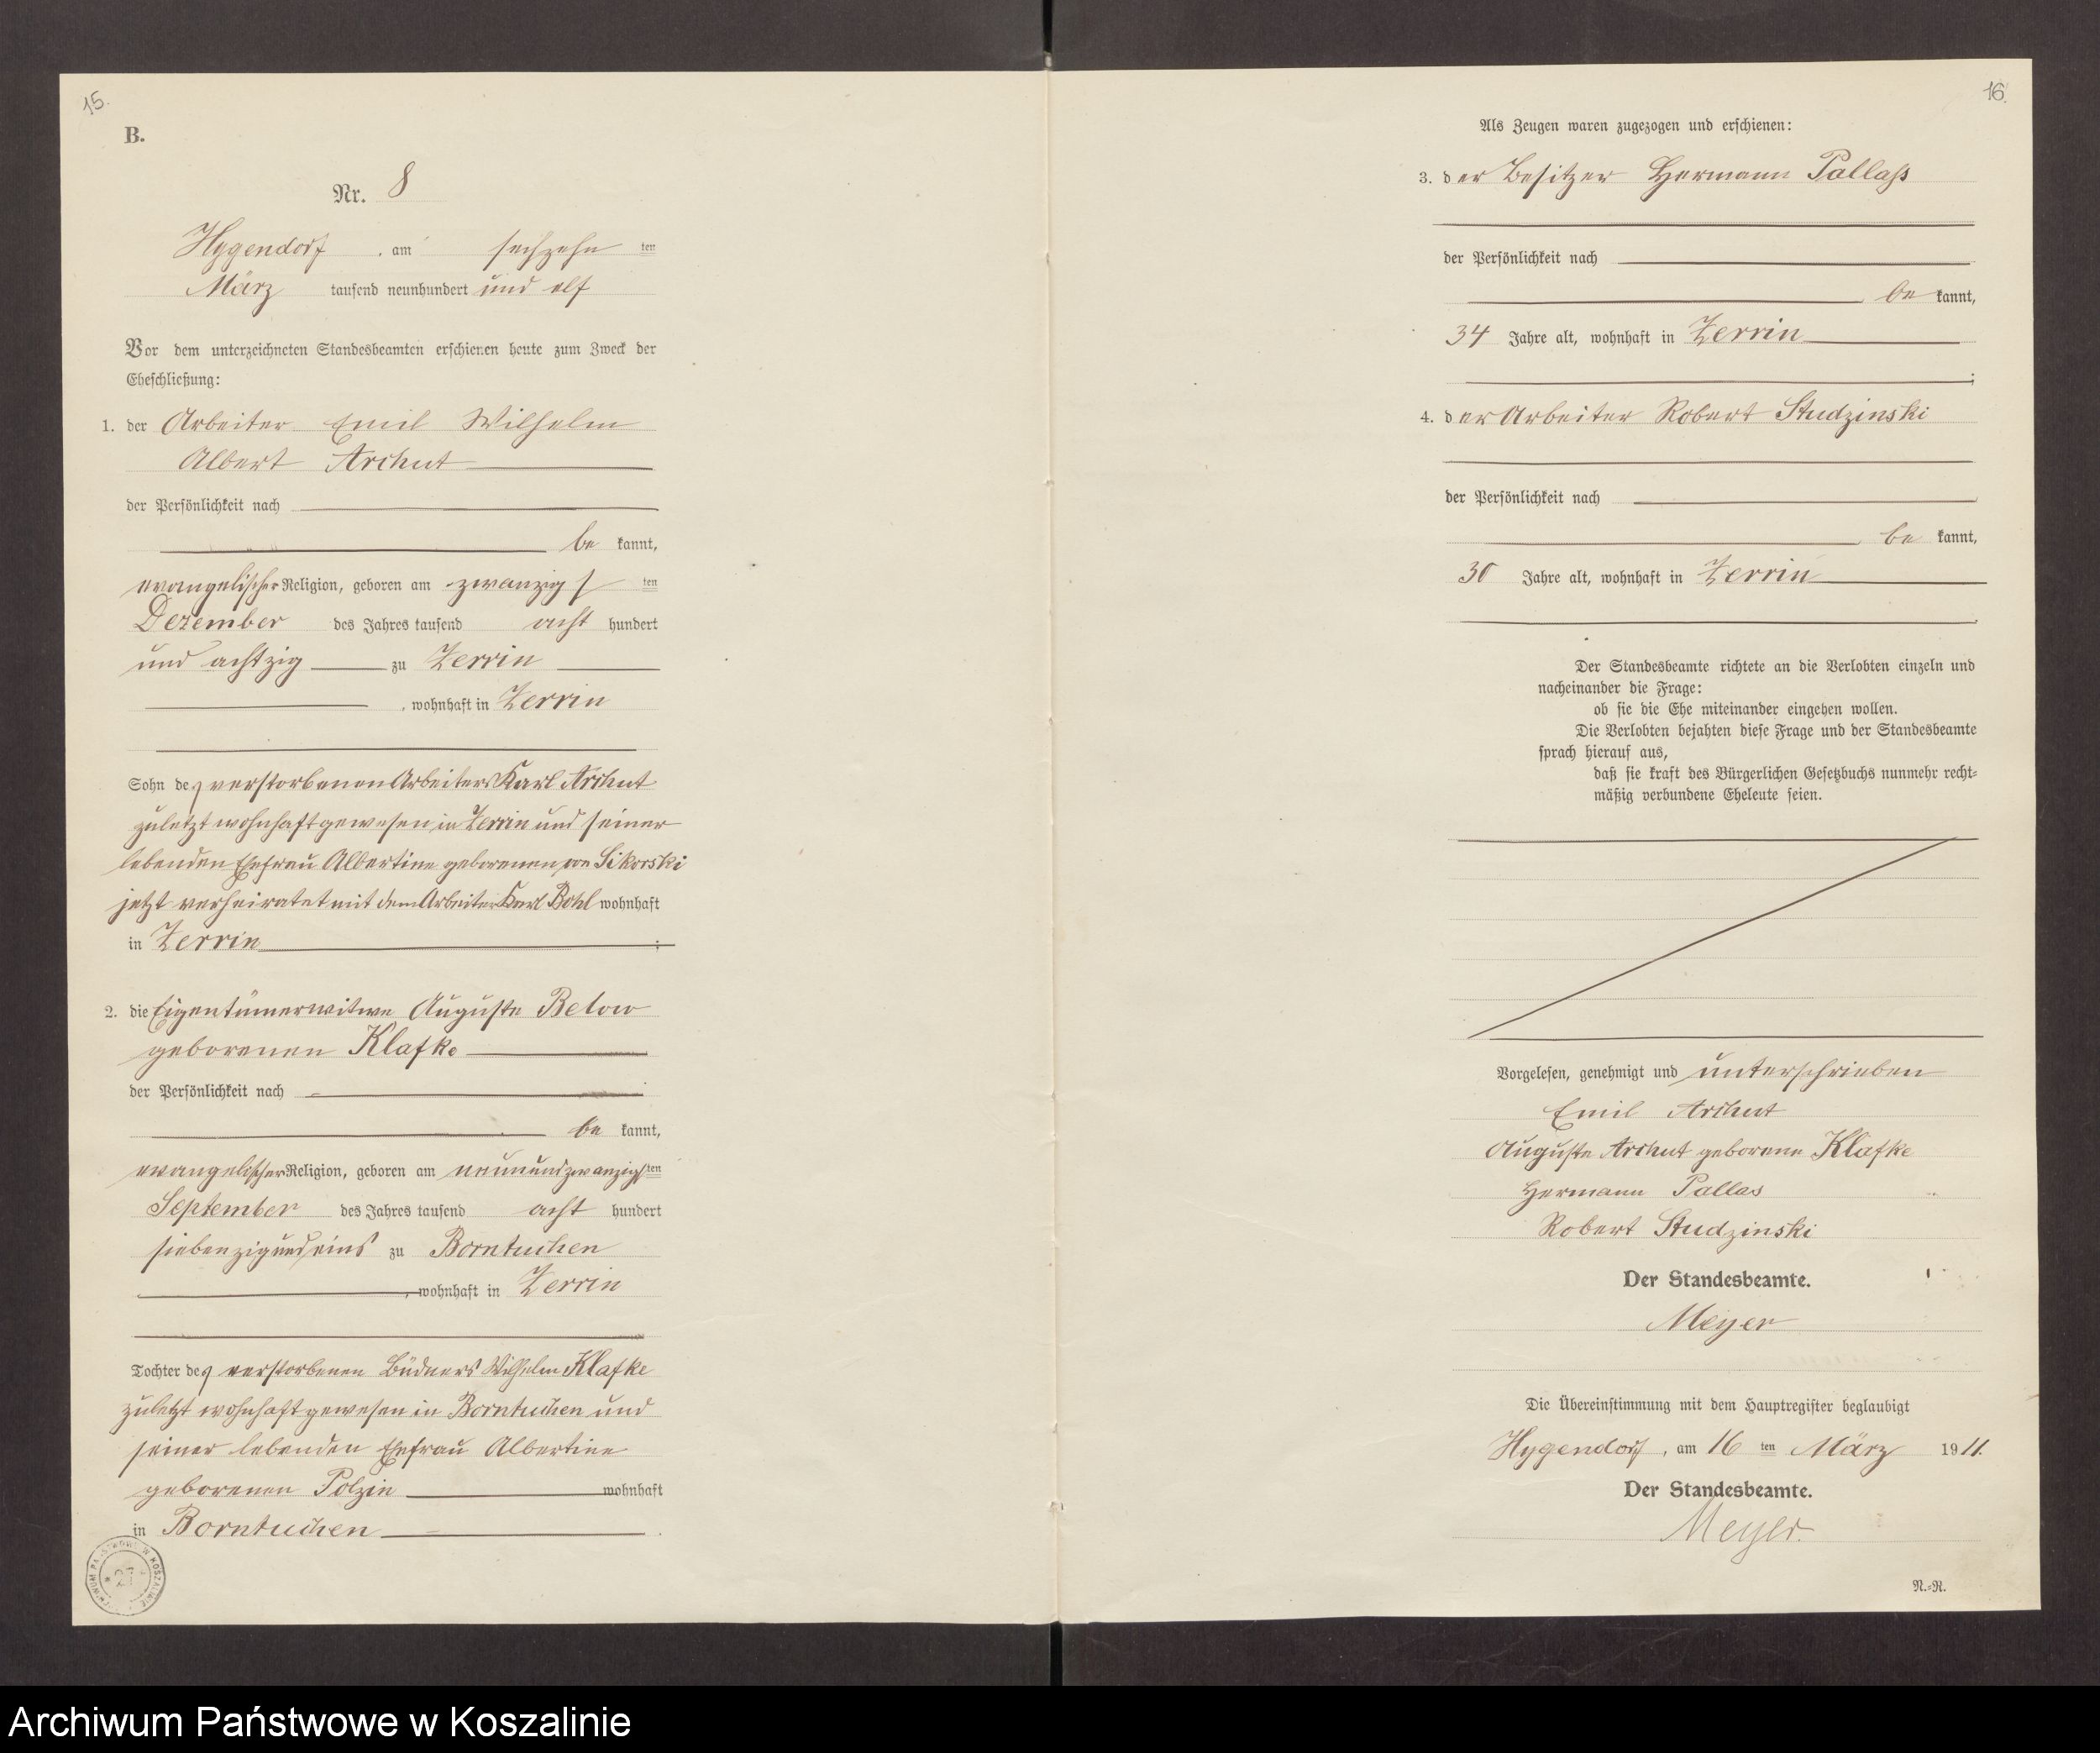 15.
B.
Nr. 8
Hygendorf, am sechzehn ten
März tausend neunhundert und elf
Vor dem unterzeichneten Standesbeamten erschienen heute zum Zweck der
Eheschließung:
1. der Arbeiter Emil Wilhelm
Albert Archut
der Persönlichkeit nach
be kannt,
evangelischer Religion, geboren am zwanzigsten
Dezember des Jahres tausend acht hundert
und achtzig zu Zerrin
, wohnhaft in Zerrin
Sohn des verstorbenen Arbeiters Karl Archut
zuletzt wohnhaft gewesen in Zerrin und seiner
lebenden Ehefrau Albertine geborenen von Sikorski
jetzt verheiratet mit dem Arbeiter Karl Bohl wohnhaft
in Zerrin ;
2. die Eigentümerwitwe Auguste Below
geborenen Klafke
der Persönlichkeit nach
be kannt,
evangelischer Religion, geboren am neunundzwanzigsten
September des Jahres tausend acht hundert
siebenzigundeins zu Borntuchen
, wohnhaft in Zerrin
Tochter des verstorbenen Büdners Wilhelm Klafke
zuletzt wohnhaft gewesen in Borntuchen und
seiner lebenden Ehefrau Albertine
geborenen Polzin wohnhaft
in Borntuchen .
16.
Als Zeugen waren zugezogen und erschienen:
3. der Besitzer Hermann Pallaß
der Persönlichkeit nach
be kannt,
34 Jahre alt, wohnhaft in Zerrin
;
4. der Arbeiter Robert Studzinski
der Persönlichkeit nach
be kannt,
30 Jahre alt, wohnhaft in Zerrin
.
Der Standesbeamte richtete an die Verlobten einzeln und
nacheinander die Frage:
ob sie die Ehe miteinander eingehen wollen.
Die Verlobten bejahten diese Frage und der Standesbeamte
sprach hierauf aus,
daß sie kraft des Bürgerlichen Gesetzbuchs nunmehr recht-
mäßig verbundene Eheleute seien.
Vorgelesen, genehmigt und unterschrieben
Emil Archut
Auguste Archut geborene Klafke
Hermann Pallas
Robert Studzinski
Der Standesbeamte.
Meyer
Die Übereinstimmung mit dem Hauptregister beglaubigt
Hygendorf, am 16 ten März 1911.
Der Standesbeamte.
Meyer.
N.-N.
Archiwum Państwowe w Koszalinie